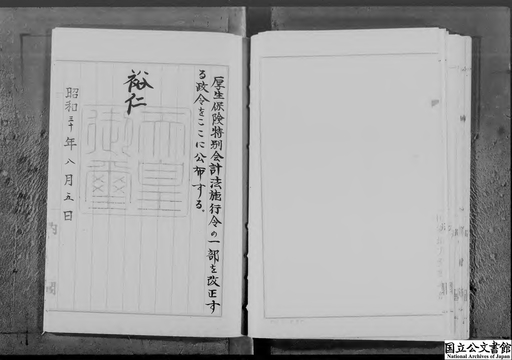 厚生保険特別会計法施行令の一部を改正す
る政令をここに公布する。
裕仁
天皇
御璽
昭和三十年八月五日
国立公文書館
National Archives of Japan